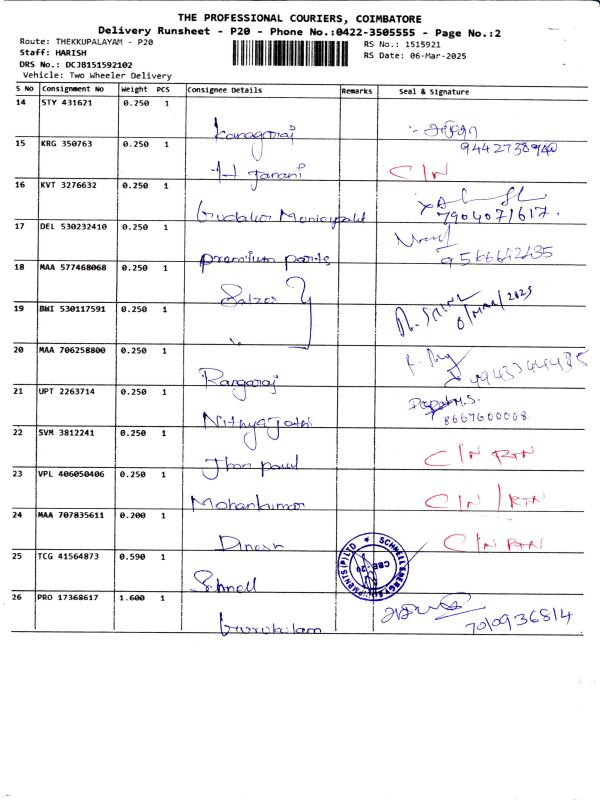 THE PROFESSIONAL COURIERS, COIMBATORE
Delivery Runsheet - P20 - Phone No.:0422-3505555 - Page No.:2
Route: THEKKUPALAYAM - P20
RS No.: 1515921
Staff: HARISH
RS Date: 06-Mar-2025
DRS No.: DCJB151592102
Vehicle: Two Wheeler Delivery
S No Consignment No Weight PCS Consignee Details Remarks Seal & Signature
14 STY 431621 0.250 1
Kanagaraj
15 KRG 350763 0.250 1
H Tarani C/N
16 KVT 3276632 0.250 1
Gudalur Municipalit 7904071617.
17 DEL 530232410 0.250 1
premium parts
18 MAA 577468068 0.250 1
Salzer
19 BWI 530117591 0.250 1
20 MAA 706258800 0.250 1
Rangaraj
21 UPT 2263714 0.250 1
Nithya Jothi 8667600008
22 SVM 3812241 0.250 1
Jhon paul C/N RTN
23 VPL 406050406 0.250 1
Mohankumar C/N / RTN
24 MAA 707835611 0.200 1
Dinesh C/N RTN
25 TCG 41564873 0.590 1
Schnell
SCHNELL ENERGY EQUIPMENTS (P) LTD
CBE-20
26 PRO 17368617 1.600 1
Gurukulam